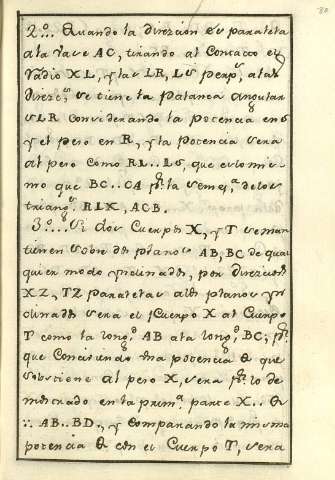 2.º... Quando la direcion es paralela
a la vace AC, tirando al Contacto el
radio XL, y las LR, LS perp.s a las
direc.s, se tiene la palanca angular
SLR Considerando la potencia en S
y el peso en R, y la potencia sera
al peso como RL..LS, que es lo mis-
mo que BC..CA p.r la semej.a de los
triang.s RLX, ACB.
3.º.... Si dos Cuerpos X, y T se man-
tienen sobre dos planos AB, BC de qual
quier modo ynclinados, por direciones
XZ, TZ paralelas a los planos yn
clinados sera el Cuerpo X al Cuerpo
T como la long.d AB a la long.d BC; p.r
que Considerando una potencia Q que
sobstiene al peso X, sera p.r lo de
mostrado en la prim.a parte X..Q
:: AB..BD, y Comparando la misma
potencia Q con el Cuerpo T, sera